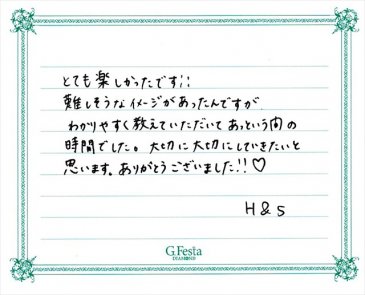 とても楽しかったです!!
難しそうなイメージがあったんですが
わかりやすく教えていただいてあっという間の
時間でした。大切に大切にしていきたいと
思います。ありがとうございました!!♡
H & S
G.Festa
DIAMOND